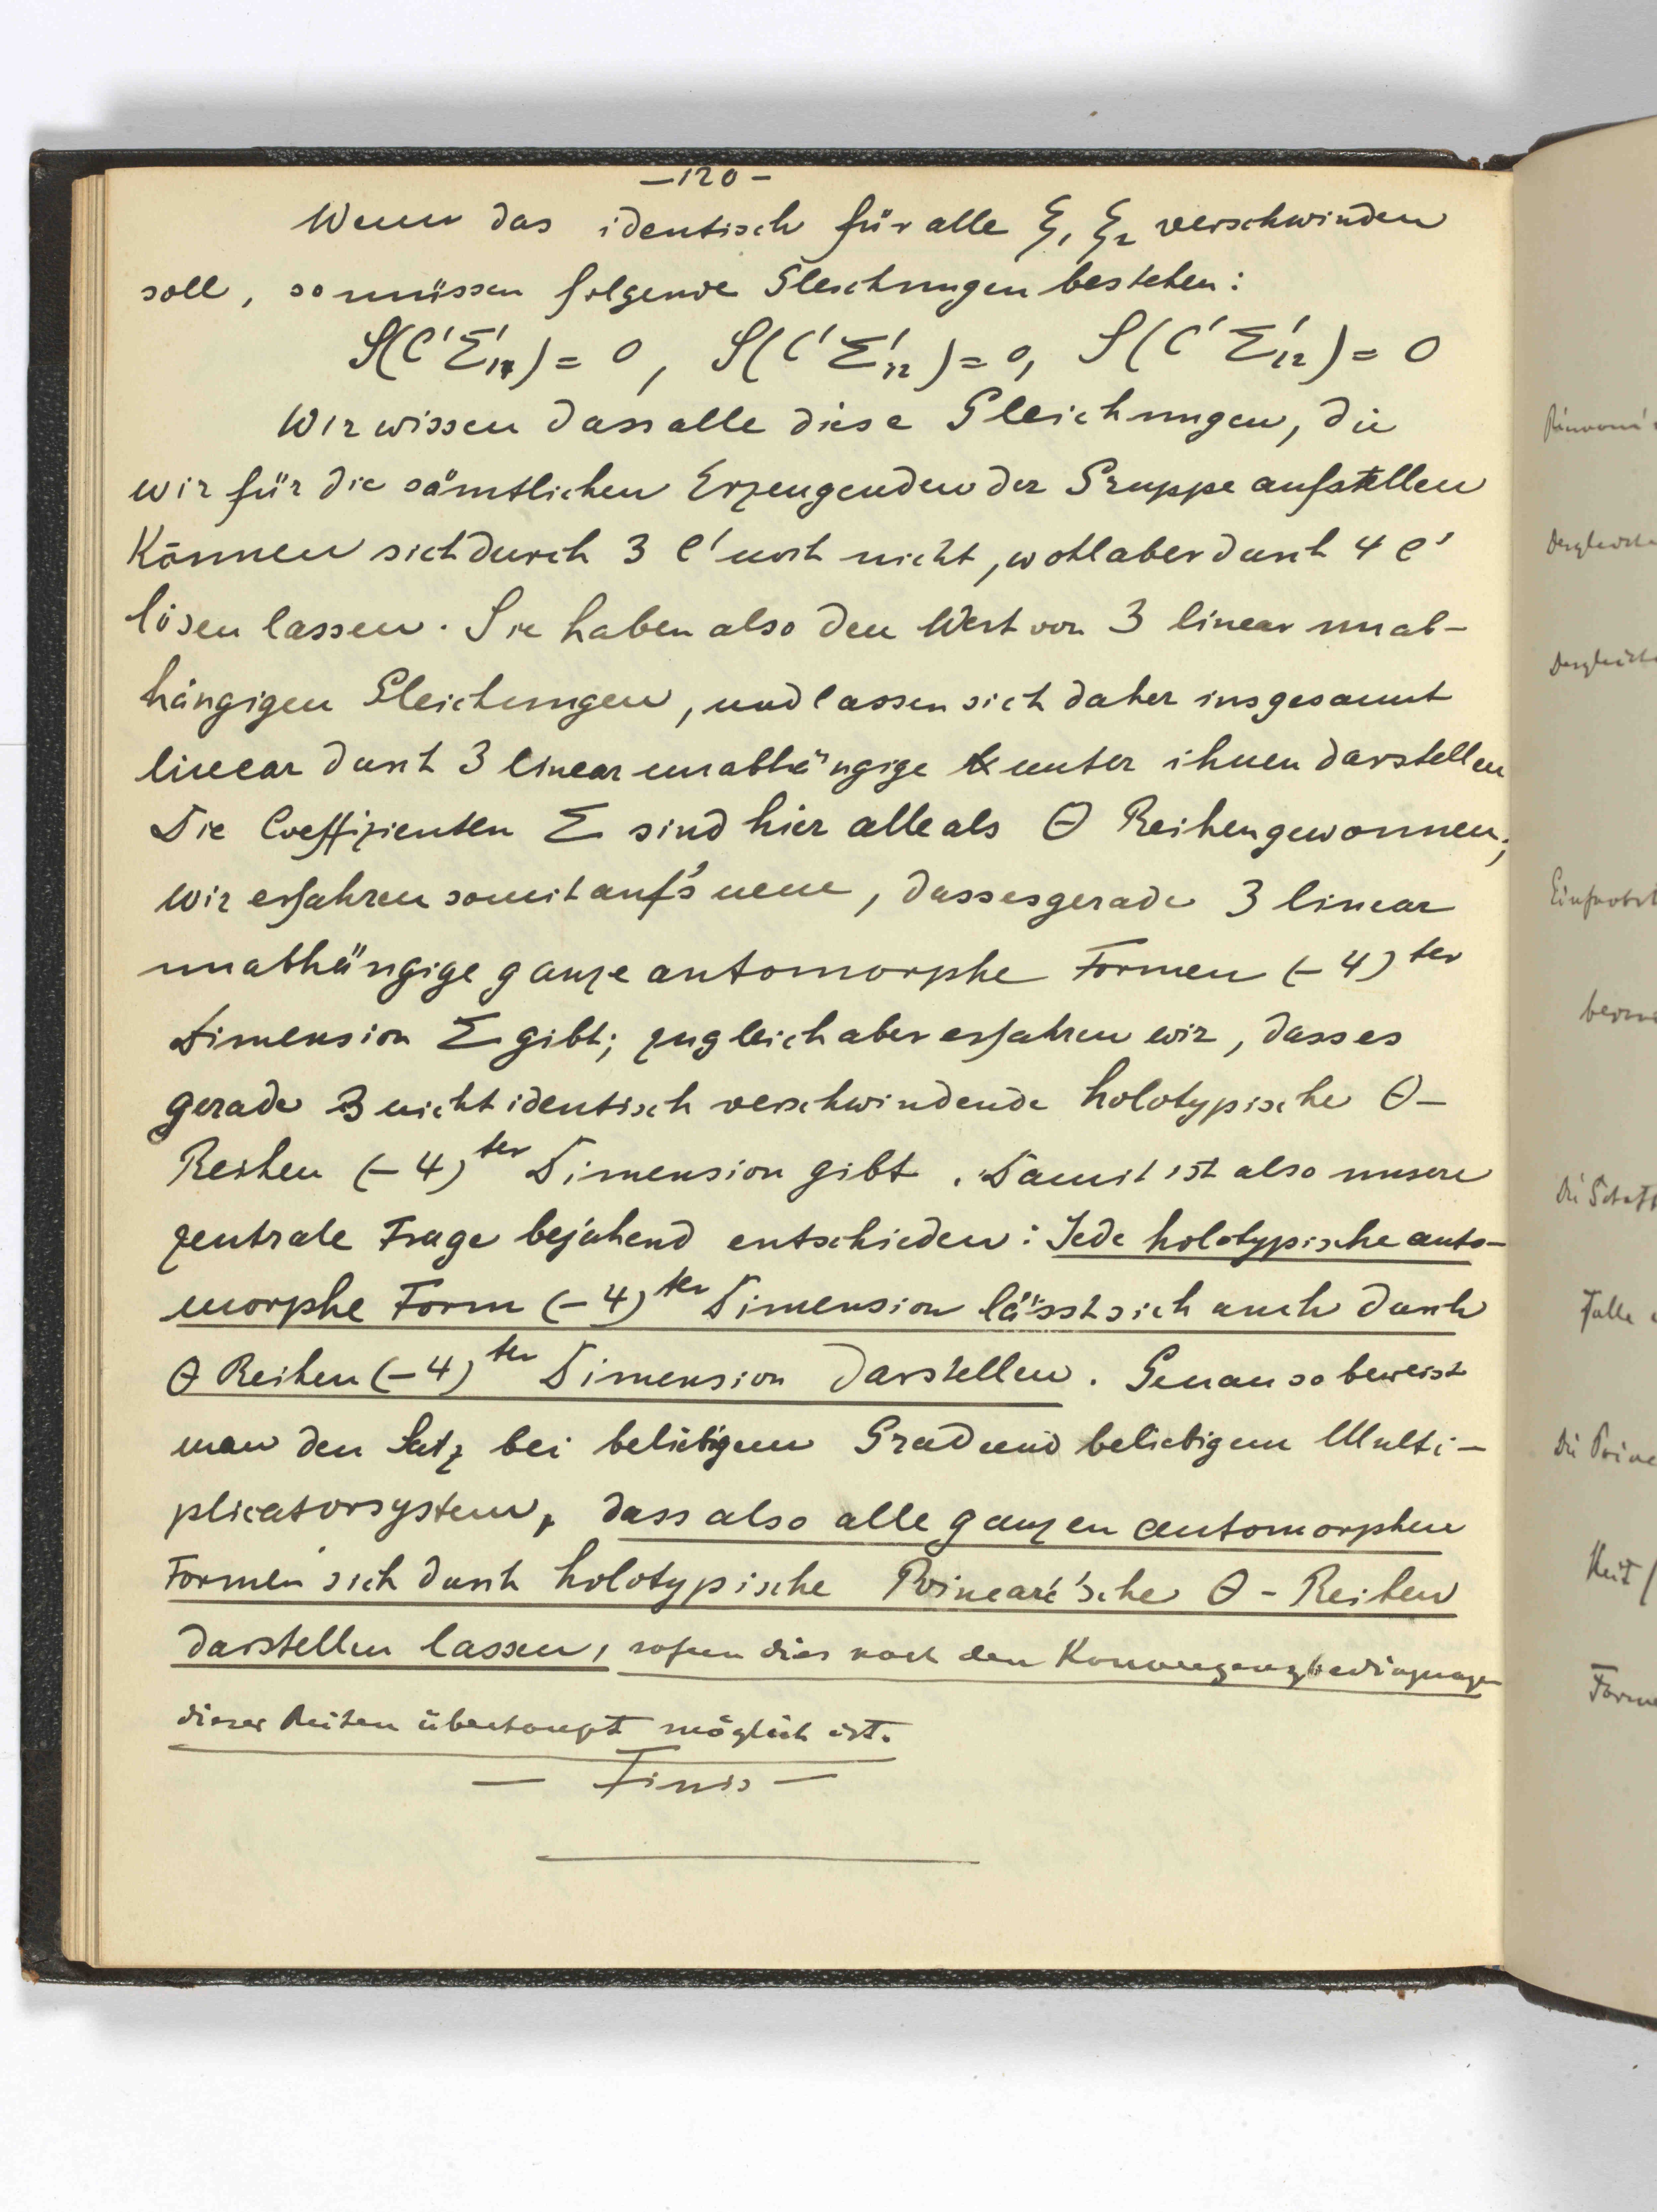 –120–
Wenn das identisch für alle ξ₁ ξ₂ verschwinden
soll, so müssen folgende Gleichungen bestehen:
S(C'Σ'₁₁) = 0, S(C'Σ'₁₂) = 0, S(C'Σ'₂₂) = 0
Wir wissen dass alle diese Gleichungen, die
wir für die sämtlichen Erzeugenden der Gruppe aufstellen
Können sich durch 3 C' noch nicht, wohl aber durch 4 C'
lösen lassen. Sie haben also den Wert von 3 linear unab-
hängigen Gleichungen, und lassen sich daher insgesamt
linear durch 3 linear unabhängige unter ihnen darstellen
Die Coeffizienten Σ sind hier alle als Θ Reihen gewonnen;
wir erfahren somit auf's neue, dass es gerade 3 linear
unabhängige ganze automorphe Formen (–4)ter
Dimension Σ gibt; zugleich aber erfahren wir, dass es
gerade 3 nicht identisch verschwindende holotypische Θ–
Reihen (–4)ter Dimension gibt. Damit ist also unsere
zentrale Frage bejahend entschieden: Jede holotypische auto-
morphe Form (–4)ter Dimension lässt sich auch durch
Θ Reihen (–4)ter Dimension darstellen. Genau so beweist
man den Satz bei beliebigem Grad und beliebigem Multi-
plicatorsystem, dass also alle ganzen automorphen
Formen sich durch holotypische Poincaré'sche Θ – Reihen
darstellen lassen, sofern dies nach den Konvergenzbedingungen
dieser Reihen überhaupt möglich ist.
— Finis —